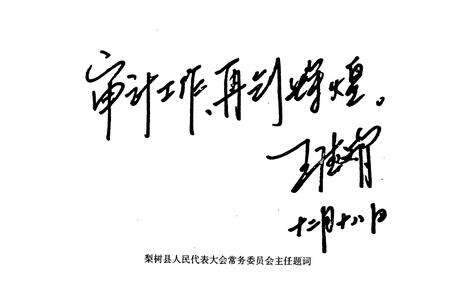 审计工作，再创辉煌。
十二月十八日
梨树县人民代表大会常务委员会主任题词